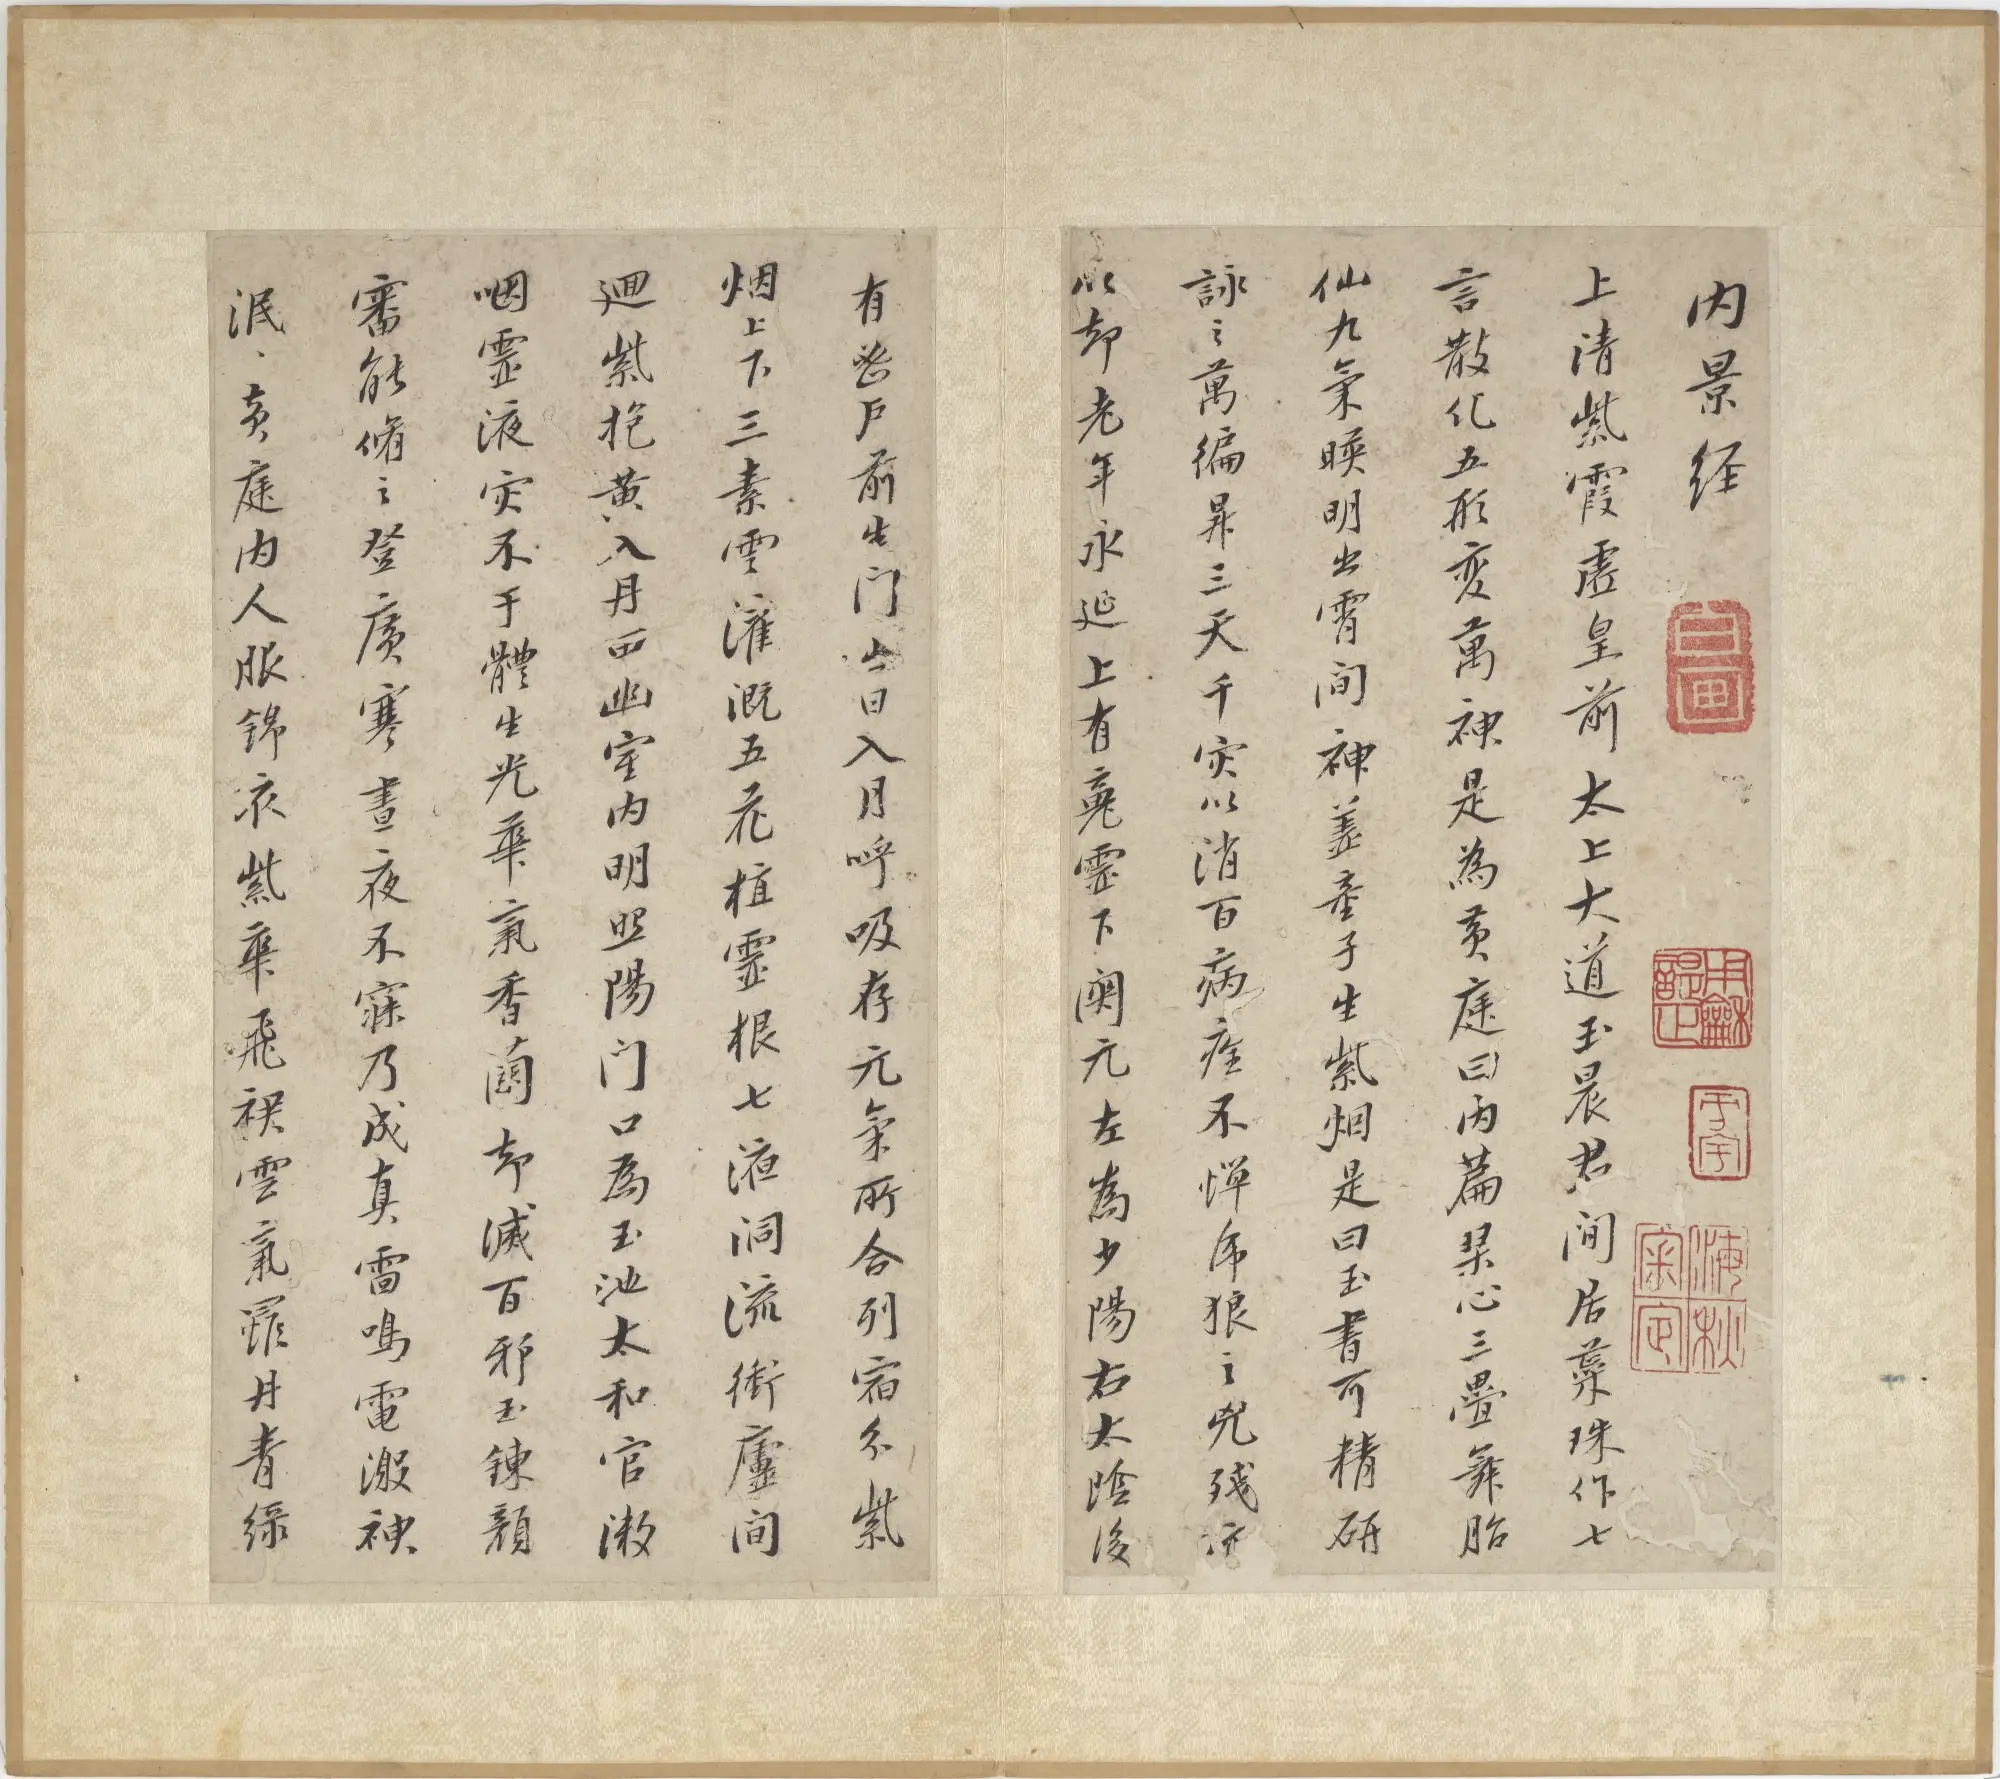 内景经
上清紫霞虚皇前太上大道玉晨君间居蕊珠作七
言散化五形变萬神是為黄庭曰内篇琴心三疊舞胎
仙九氣暎明出霄间神盖童子生紫烟是曰玉書可精研
詠之萬徧昇三天千灾以消百病痊不惮虎狼之兇残亦
以却老年永延上有䰟霊下関元左為少陽右太陰後
有密户前生门出日入月呼吸存元氣所合列宿分紫
烟上下三素雲灌溉五花植霊根七液洞流衝廬间
廻紫抱黄入丹田幽室内明照陽门口為玉池太和官漱
咽霊液灾不干體生光華氣香蘭却滅百邪玉錬顔
審能脩之登廣寒晝夜不寐乃成真雷鳴電激神
泯、黄庭内人服錦衣紫華飛裙雲氣羅丹青緑